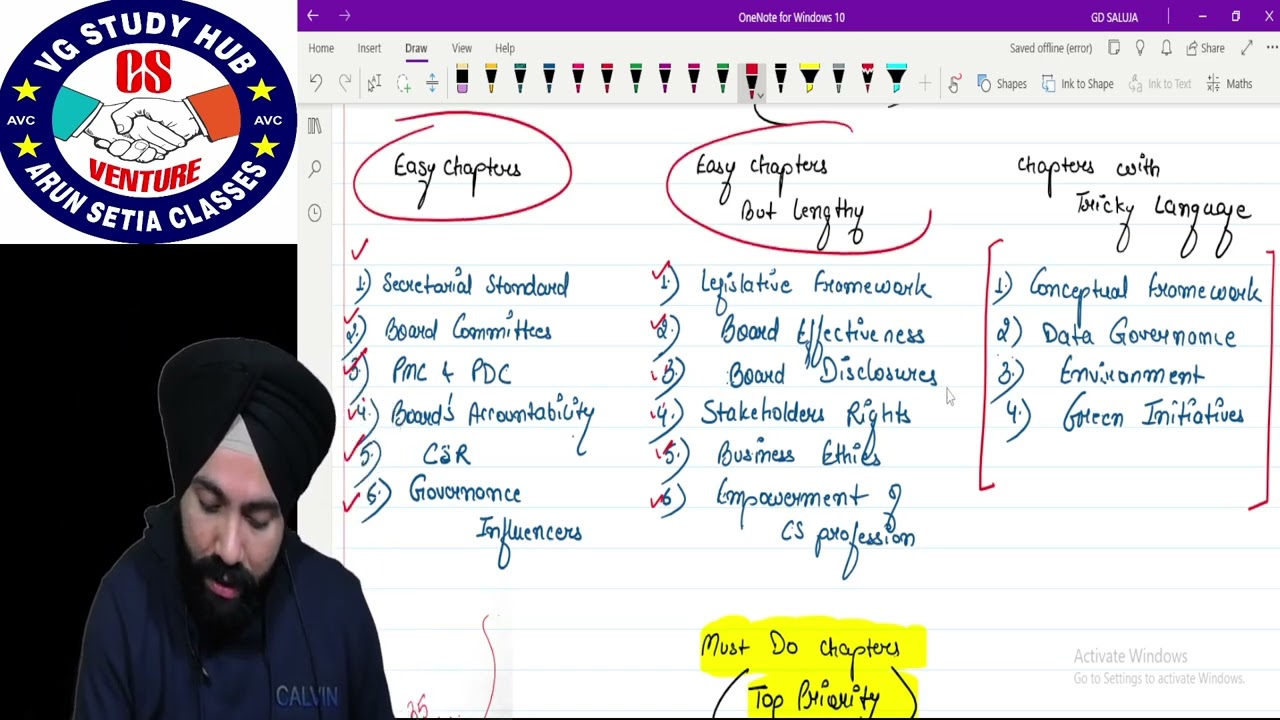 VG STUDY HUB
CS
AVC
AVC
VENTURE
ARUN SETIA CLASSES
OneNote for Windows 10
GD SALUJA
Home
Insert
Draw
View
Help
Saved offline (error)
Share
Shapes
Ink to Shape
Ink to Text
Maths
Easy Chapters
1.) Secretarial Standard
2.) Board Committees
3.) PMC & PDC
4.) Board's Accountability
5.) CSR
6.) Governance
Influencers
Easy chapters
But Lengthy
1.) Legislative Framework
2.) Board Effectiveness
3.) Board Disclosures
4.) Stakeholders Rights
5.) Business Ethics
6.) Empowerment of
CS profession
Chapters with
Tricky Language
1) Conceptual Framework
2) Data Governance
3.) Environment
4.) Green Initiatives
Must Do chapters
Top Priority
25
Activate Windows
Go to Settings to activate Windows.
CALVIN